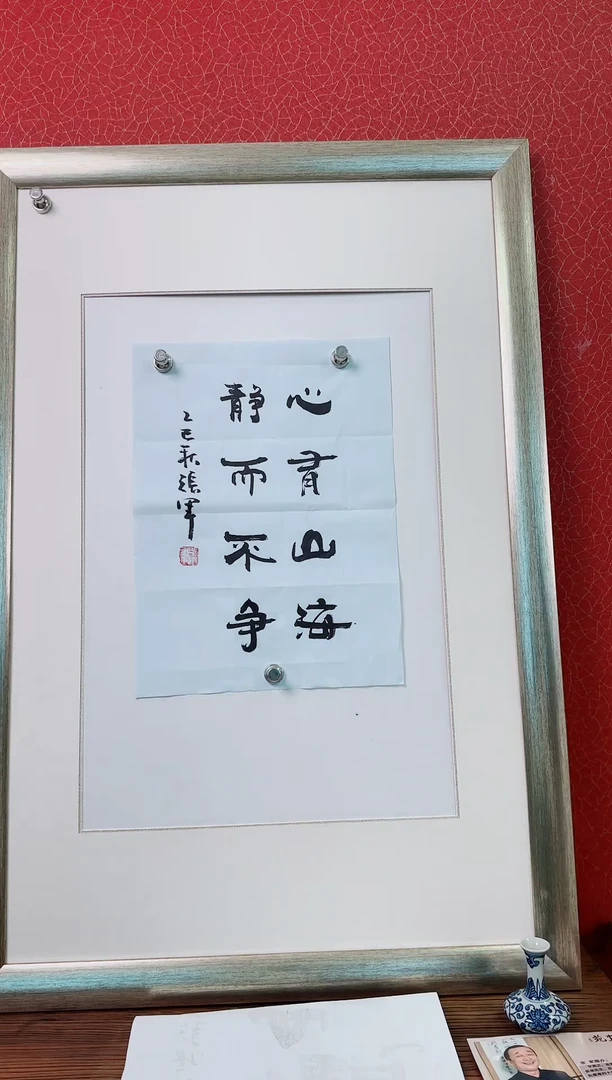 心有山海
静而不争
乙巳秋张军